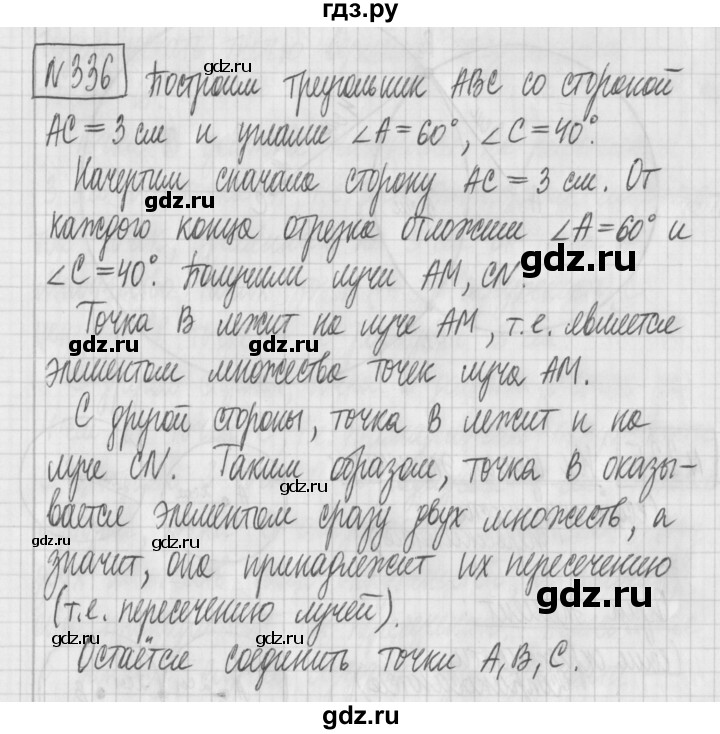 гдз.ру
N336 Построим треугольник ABC со стороной
gdz.ru
gdz.ru
AC = 3 см и углами ∠A = 60°, ∠C = 40°.
Начертим сначала сторону AC = 3 см. От
gdz.ru
каждого конца отрезка отложим ∠A = 60° и
gdz.ru
∠C = 40°. Получили лучи AM, CN.
Точка B лежит на луче AM, т.е. является
gdz.ru
gdz.ru
элементом множества точек луча AM.
С другой стороны, точка B лежит и на
луче CN. Таким образом, точка B оказы-
gdz.ru
вается элементом сразу двух множеств, а
gdz.ru
gdz.ru
значит, она принадлежит их пересечению
gdz.ru
(т.е. пересечению лучей).
gdz.ru
gdz.ru
Остаётся соединить точки A, B, C.
gdz.ru